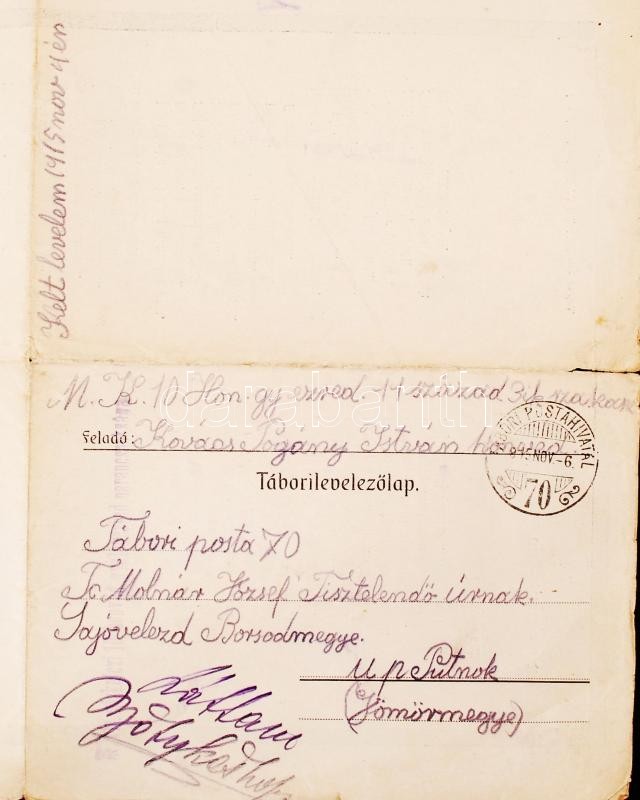 Kelt levelem 1915 nov 4 én
M. K. 10 Hon. gy ezred. 11 század 3ik szakasz
Feladó: Kovács Pogány István honvéd
TÁBORI POSTAHIVATAL
915 NOV.-6.
70
Táborilevelezőlap.
Tábori posta 70
Tc Molnár József Tisztelendő úrnak.
Sajóvelezd Borsodmegye.
u p Putnok
(Gömörmegye)
Láttam
darabanth